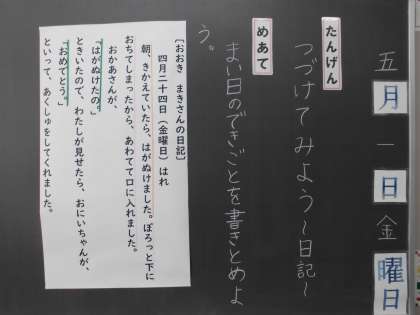 五月一日金曜日
たんげん
つづけてみよう～日記～
めあて
まい日のできごとを書きとめよ
う。
〔おおき　まきさんの日記〕
四月二十四日（金曜日）はれ
朝、きがえていたら、はがぬけました。ぽろっと下に
おちてしまったから、あわてて口に入れました。
おかあさんが、
「はがぬけたの。」
ときいたので、わたしが見せたら、おにいちゃんが、
「おめでとう。」
といって、あくしゅをしてくれました。